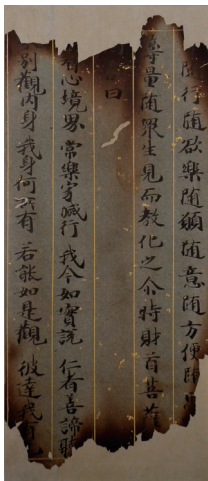 随行随欲樂随願随意随方便随
籌量随眾生見而教化之尒時財首菩薩
曰
心境界 常樂寂滅行 我今如實說 仁者善諦聽
別觀內身 我身何所有 若能如是觀 彼達我有